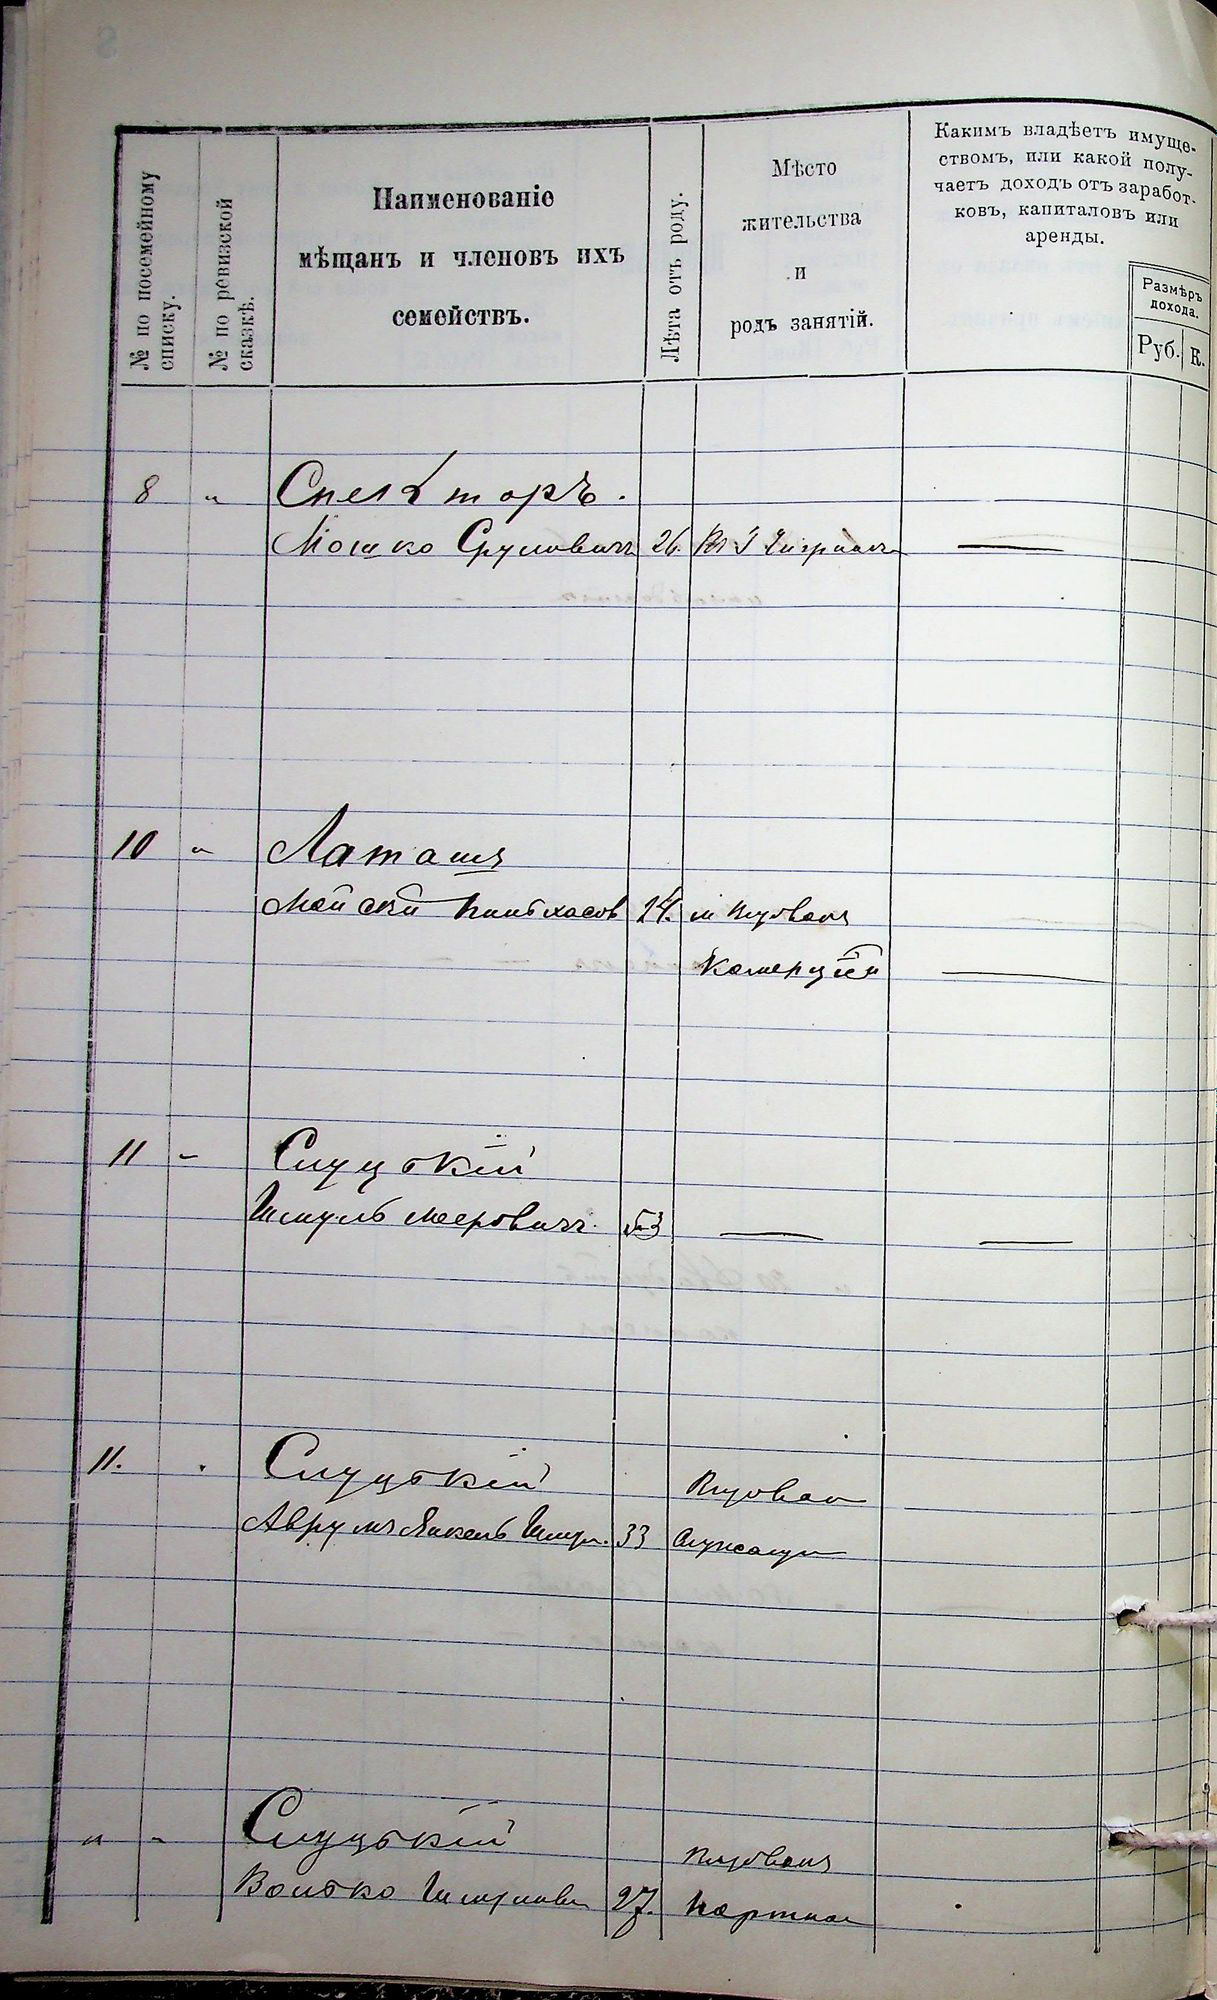 № по посемейному списку.
№ по ревизской сказкѣ.
Наименованіе
мѣщанъ и членовъ ихъ
семействъ.
Лѣта отъ роду.
Мѣсто
жительства
и
родъ занятій.
Какимъ владѣетъ имуще-
ствомъ, или какой полу-
чаетъ доходъ отъ заработ-
ковъ, капиталовъ или
аренды.
Размѣръ
дохода.
Руб. К.
8 „ Спекторъ.
Мошко Сруловичъ 26.
10 „ Латашъ
Пинхасов 24. м
Комерций
11 „ Слуцкій
Шмуль Мееровичъ. 53
11. Слуцкій
Аврумъ Янкель Шмул. 33 Служащ
„ „ Слуцкій
Волько Шмулов 27. Портной